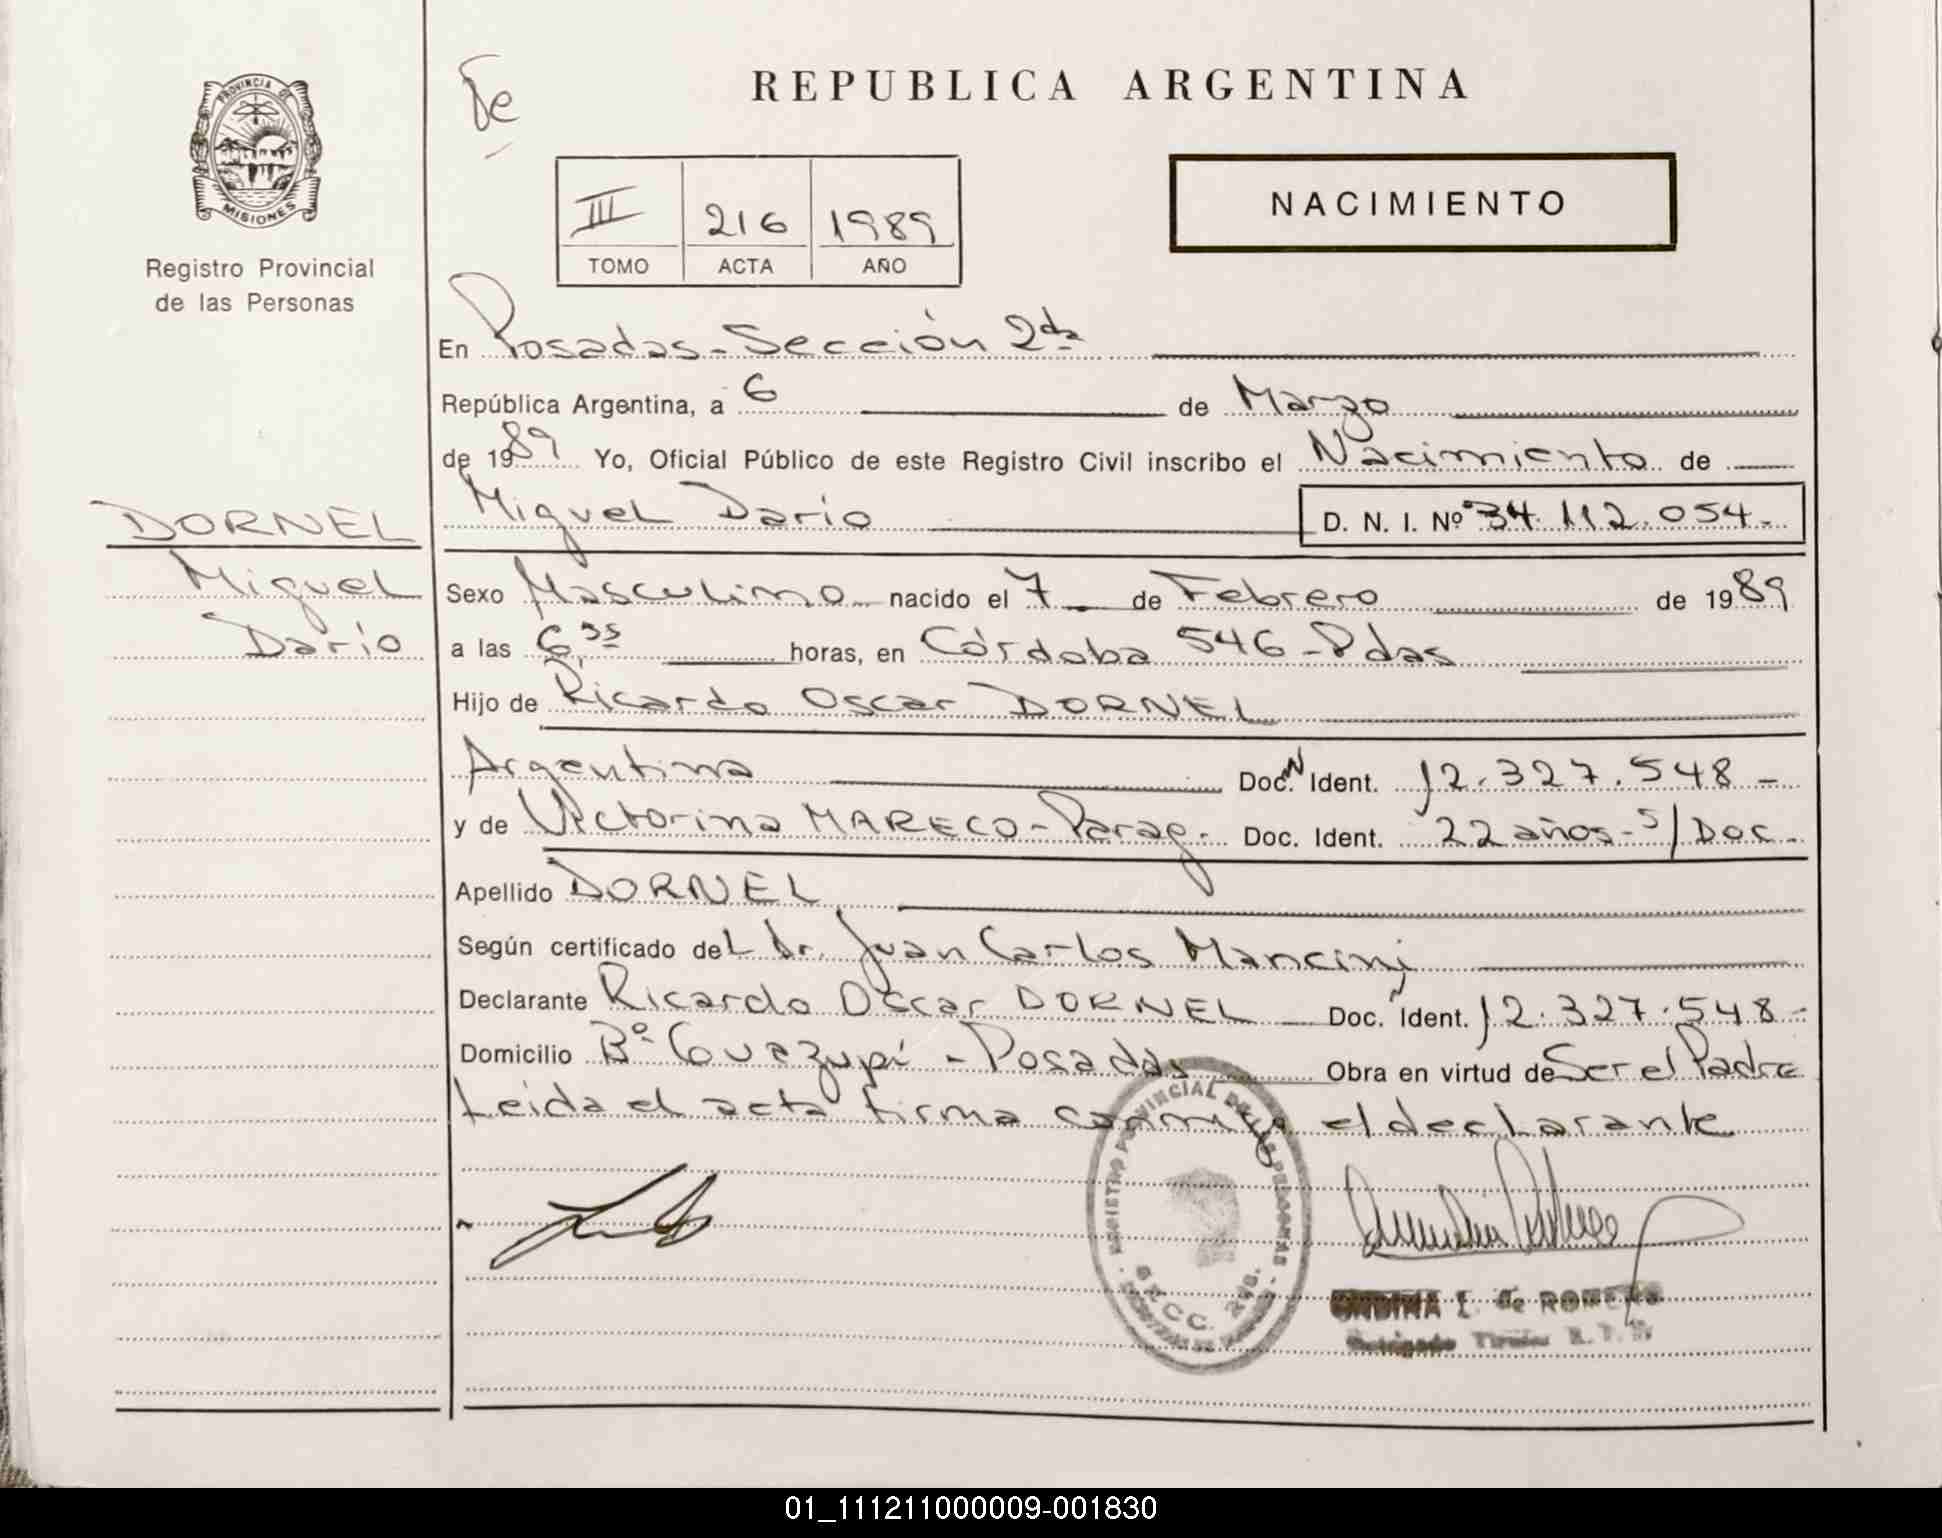 PROVINCIA DE
MISIONES
Registro Provincial
de las Personas
REPUBLICA ARGENTINA
NACIMIENTO
III 216 1989
TOMO ACTA AÑO
En Posadas - Sección 2da
República Argentina, a 6 de Marzo
de 1989 Yo, Oficial Público de este Registro Civil inscribo el Nacimiento de
DORNEL
Miguel
Darío
Miguel Darío D. N. I. Nº 34.112.054.-
Sexo Masculino nacido el 7 de Febrero de 1989
a las 6,35 horas, en Córdoba 546 - Pdas
Hijo de Ricardo Oscar DORNEL
Argentina Doc. N Ident. 12.327.548 -
y de Victorina MARECO - Parag. Doc. Ident. 22 años - s/Doc -
Apellido DORNEL
Según certificado del Dr. Juan Carlos Mancini
Declarante Ricardo Oscar DORNEL Doc. N Ident. 12.327.548 -
Domicilio Bº Guazupí - Posadas Obra en virtud de Ser el Padre
Leida el acta firma conmigo el declarante
REGISTRO PROVINCIAL DE LAS PERSONAS
SECC. 2da.
I. de ROMERO
Titular R. P. P.
01_111211000009-001830